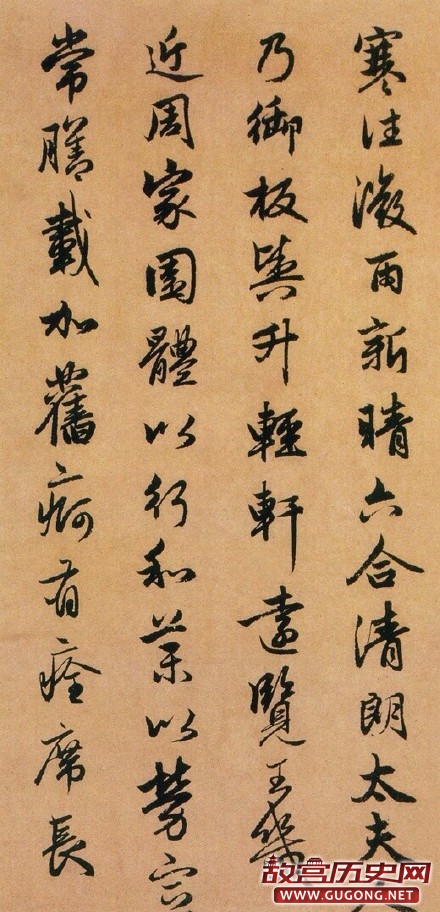 寒往微雨新晴六合清朗太夫人
乃御板輿升輕軒遠覽王畿
近周家園體以行和藥以勞宣
常膳載加舊疴有痊席長
故宫历史网
WWW.GUGONG.NET